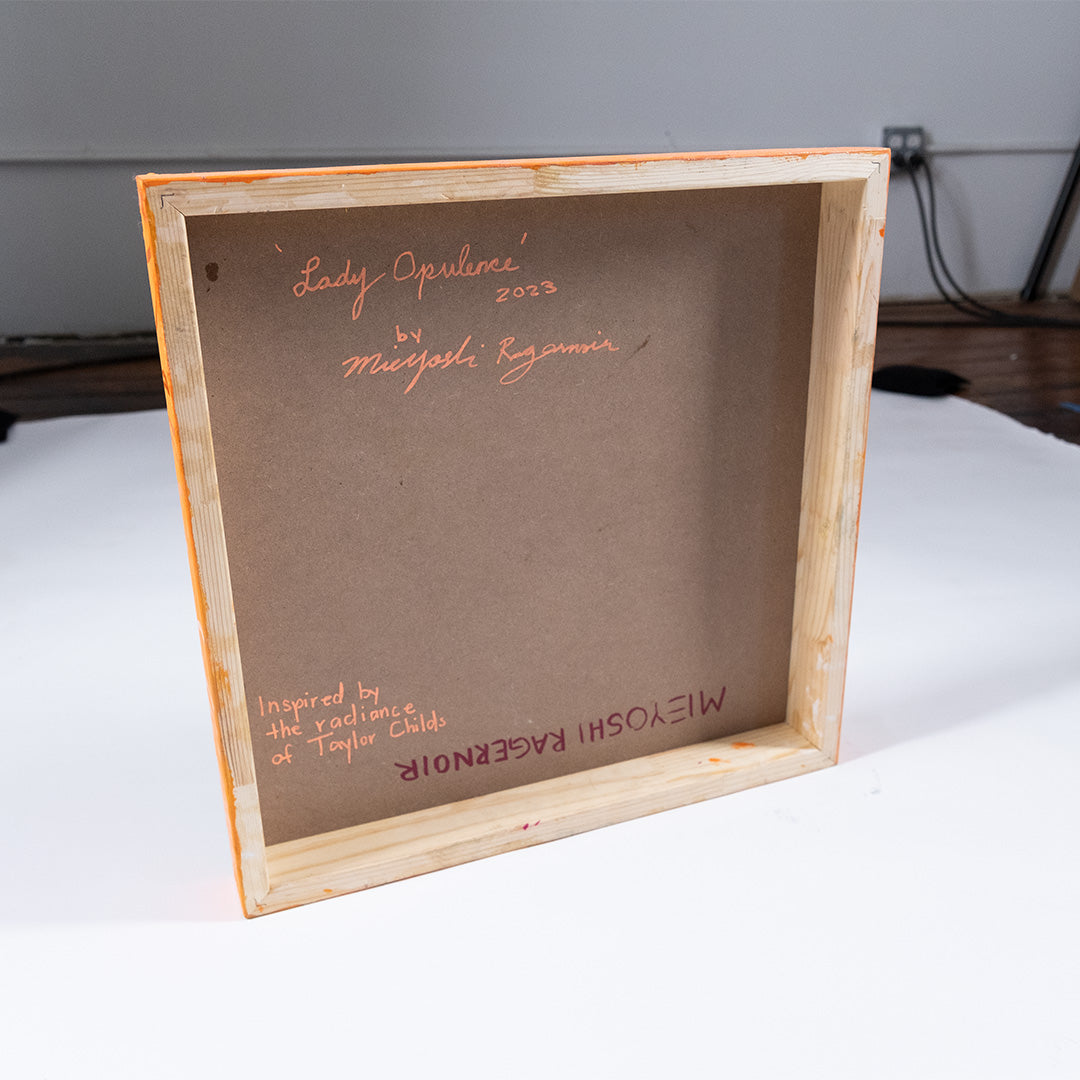 'Lady Opulence'
2023
by
Mieyoshi Ragernoir
Inspired by
the radiance
of Taylor Childs
MIEYOSHI RAGERNOIR